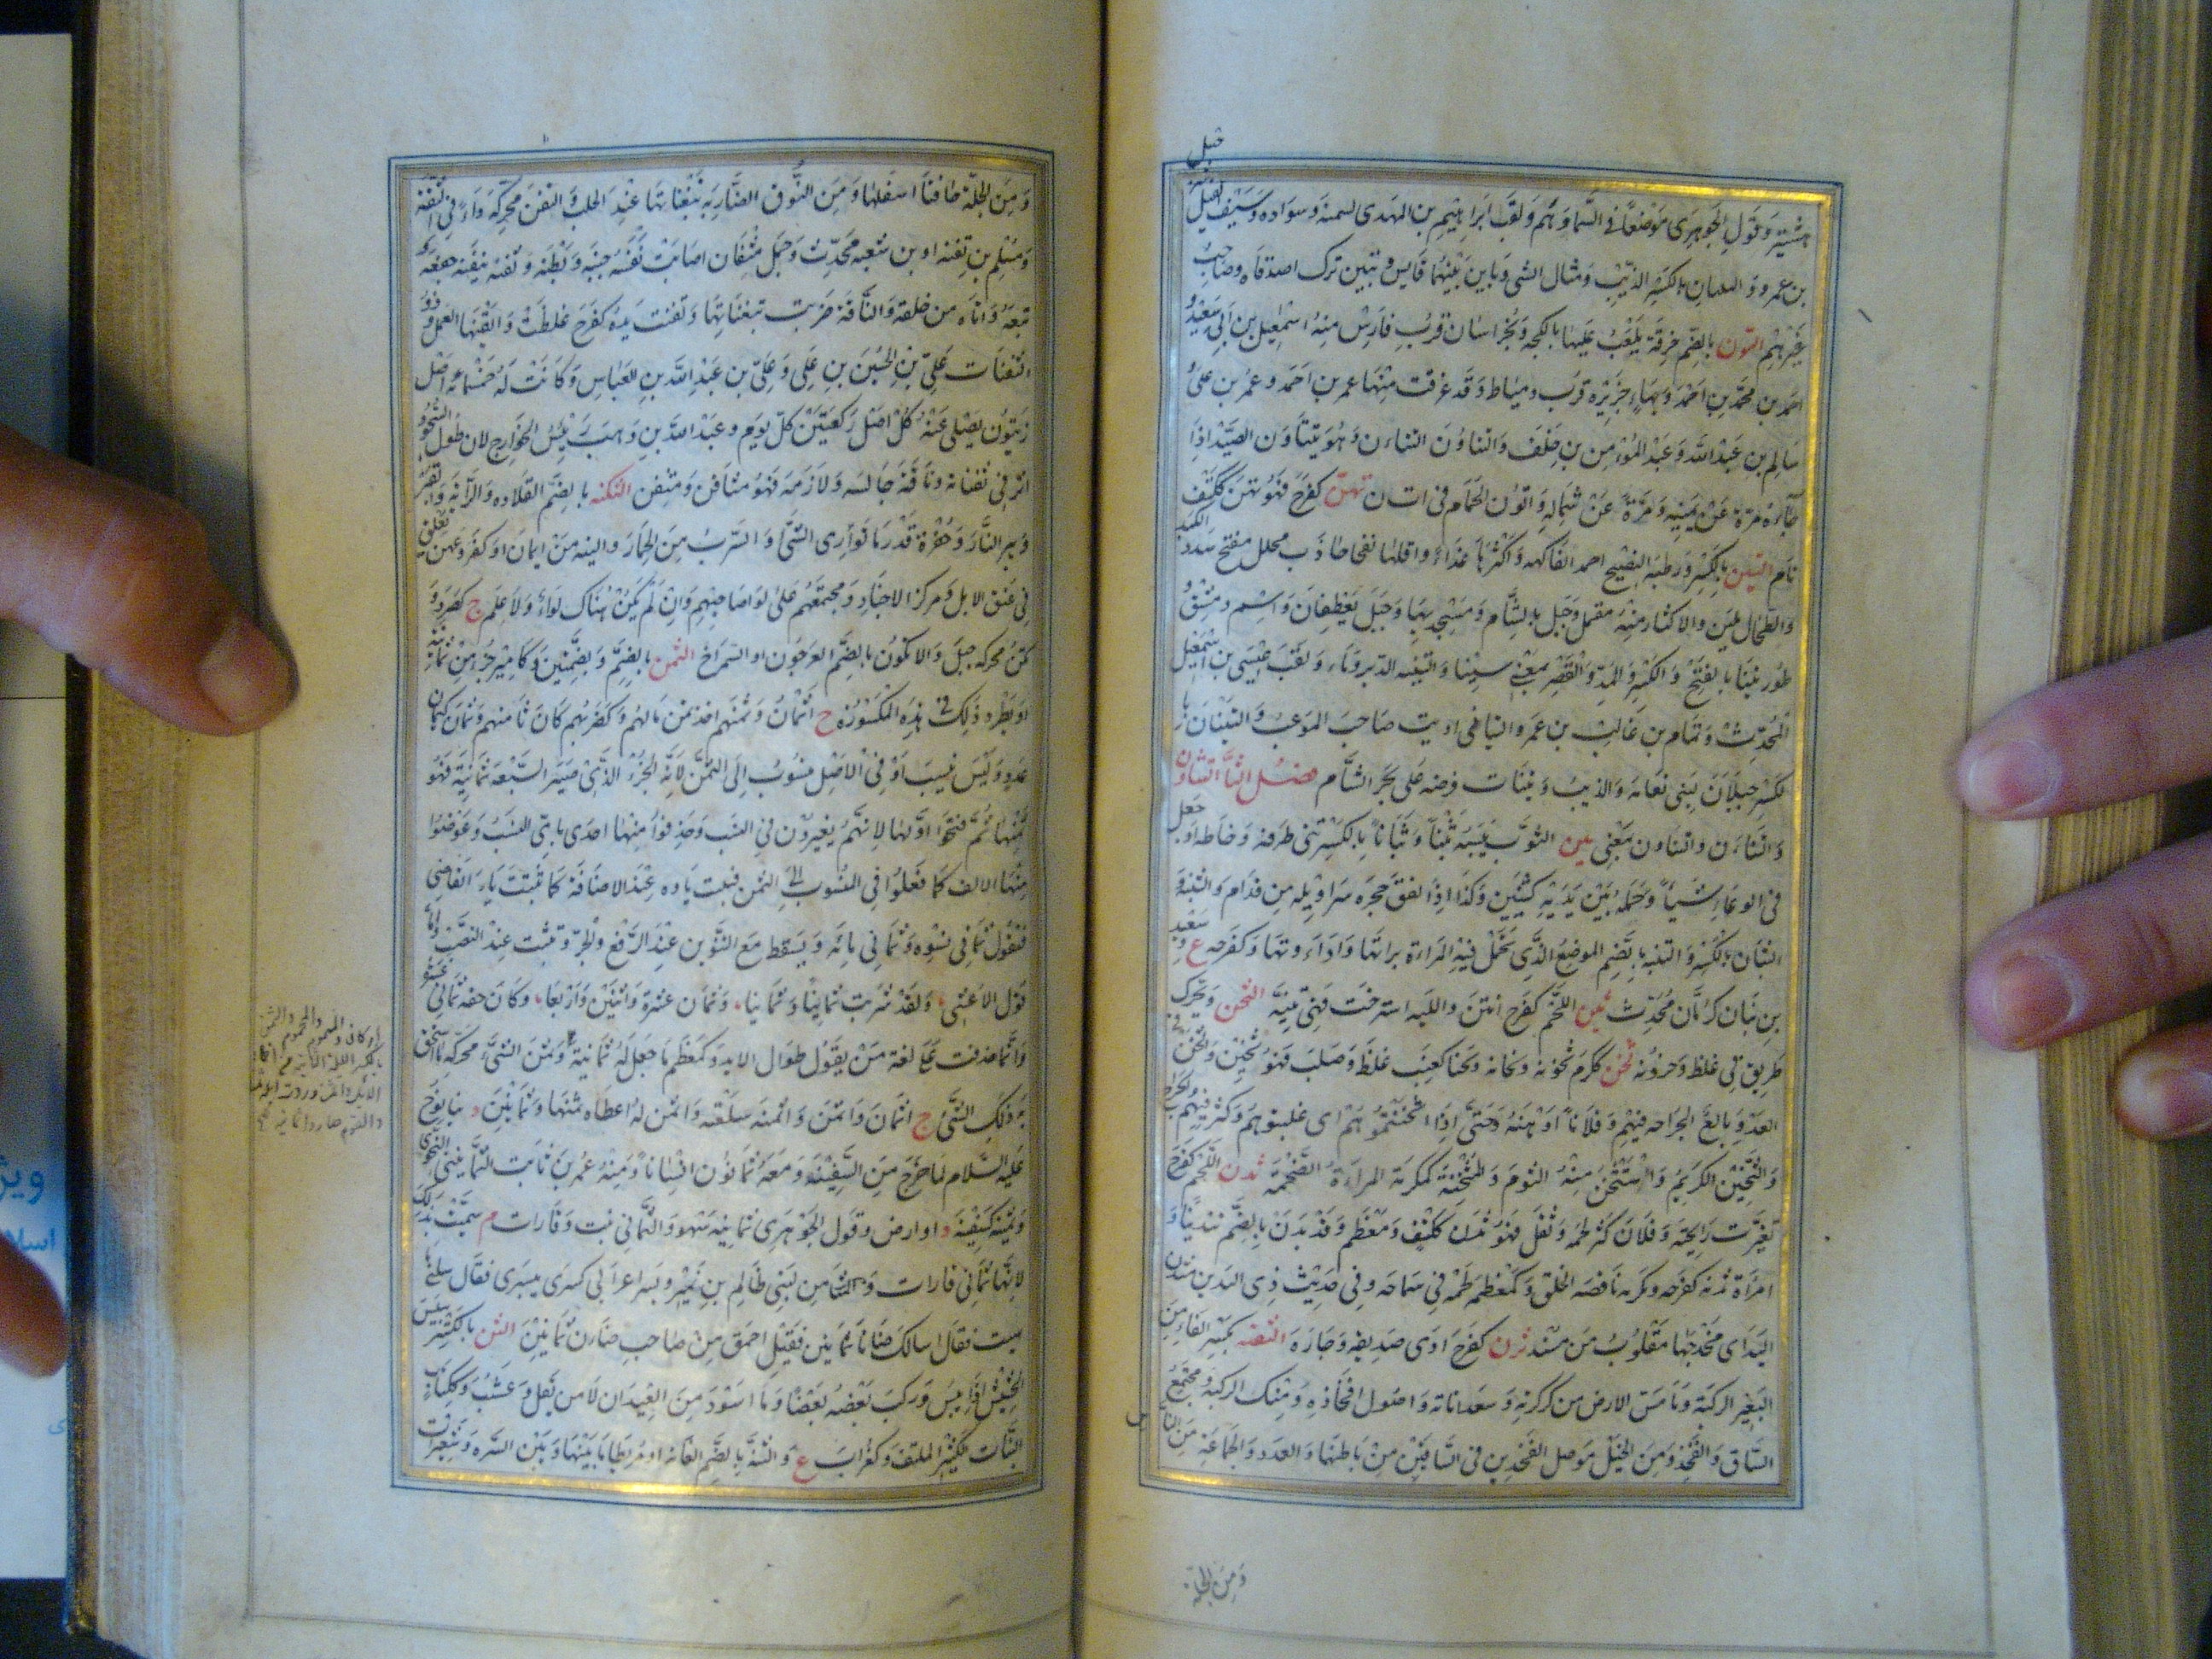 هشتير وقول الجوهري موضعا في السماء وهم ولقب ابراهيم بن المهدي لسمنه وسواده وسيف لهبل
بن عمرو والتبان بالكسر الذئب ومثال الشي وباين بينهما قايس وتبين ترك اصدقاه وصاحب
غيرهم التون بالضم خرقة يلعب عليها بالكجه وبخراسان قرب فارس منه اسمعيل بن ابي سعيد و
احمد بن محمد بن احمد وبهاء جزيرة قرب دمياط وقد غرقت منها عمر بن احمد وعمر بن علي و
سالم بن عبد الله وعبد المؤمن بن خلف والتتاون التتاءن وهو يتتاون الصيد اذا
جاءه مرة عن يمينه ومرة عن شماله واتون الحمام في ات ن تهن كفرح فهو تهن ككتف
نام التين بالكسر ورطبه النضيج احمد الفاكهه واكثرها غذاء واقلها نفخا جاذب محلل مفتح سدد الكبد
والطحال ملين والاكثار منه مقمل وجبل بالشام ومسجد بها وجبل بغطفان واسم دمشق و
طور تينا بالفتح والكسر والمد والقصر بمعنى سينا والتينه الدبر وماء ولقب عيسى بن اسمعيل
المحدث وتمام بن غالب بن عمرو التياني اديب صاحب الموعب والتينان
بالكسر جبلان لبني نعامه والذيب وتينات فرضه على بحر الشام فصل الثا الثتاون
والثتاءن والتتاون بمعنى ثبن الثوب يثبنه ثبنا وثبانا بالكسر ثنى طرفه وخاطه او جعل
في الوعاء شيا وحمله بين يديه كثبن وكذا اذا لفق حجزه سراويله من قدام والثبنه و
الثبان بالكسر والثبنه بالضم الموضع الذي تحمل فيه المراة مراتها واداوتها وكفرحه ع وسعيد
بن ثبان كرمان محدث ثتن اللحم كفرح انتن واللثه استرخت فهي ثتنة الثجن ويحرك
طريق في غلظ وحزونه ثخن ككرم ثخونه وثخانه وثخنا كعنب غلظ وصلب فهو ثخين واثخن في
العدو بالغ الجراحه فيهم وفلانا اوهنه وحتى اذا اثخنتموهم اى غلبتموهم وكثر فيهم الجراح
والثخين الكريم واستثخن منه النوم والمثخنة كمكرمة المراءة الضخمة ثدن اللحم كفرح
تغيرت رايحته وفلان كثر لحمه وثقل فهو ثدن ككتف ومعظم وقد ثدن بالضم تثدينا و
امراة ثدنه كفرحه ومكرمه ناقصه الخلق وكمعظم لحمه في سماجه وفي حديث ذي اليدين مثدن
اليد اى مخدجها مقلوب من مثند ثرن كفرح اذى صديقه وجاره الثفنه بكسر الفاء من
البعير الركبة وما مس الارض من كركرته وسعداناته واصول افخاذه ومنك الركبة ومجتمع
الساق والفخذ ومن الخيل موصل الفخذين في الساقين من باطنها والعدد والجماعة من الناس
ومن الجلة
ومن الجلة حافتا اسفلها ومن النوق الضاربه بثفناتها عند الحلب والثفن محركة داء في الثفنه
ومسلم بن ثفنه او بن شعبه محدث وجمل مثفان اصابت ثفنه جنبه وبطنه وثفنه يثفنه دفعه و
تبعه واتاه من خلفه والناقة ضربت بثفناتها وثفنت يده كفرح غلظت واثفنها العمل وذو
الثفنات علي بن الحسين بن علي وعلي بن عبد الله بن العباس وكانت له خمسمايه اصل
زيتون يصلى عند كل اصل ركعتين كل يوم وعبد الله بن وهب رئيس الخوارج لان طول السجود
اثر في ثفناته وثافنه جالسه ولازمه فهو مثافن ومثفن الثكنه بالضم القلاده والراية والقبر
وبير النار وحفرة قدر ما توارى الشي والسرب من الحمام والنيه من ايمان او كفر وعهن تعلق
في عنق الابل ومركز الاجناد ومجتمعهم على لواء صاحبهم وان لم يكن هناك لواء ولا علم ج كصرد و
ثكن محركه جبل والاثكون بالضم العرجون او الشمراخ الثمن بالضم وبضمتين وكامير جزء من ثمانية
او يطرد ذلك في هذه الكسور ج اثمان وثمنهم اخذ ثمن مالهم وكضربهم كان ثامنهم وثمان كيمان
عدد وليس بنسب او في الاصل منسوب الى الثمن لانه الجزء الذي صير السبعة ثمانية فهو
ثمنها ثم فتحوا اولها لانهم يغيرون في النسب وحذفوا منها احدى ياءي النسب وعوضوا
منها الالف كما فعلوا في المنسوب الى اليمن فثبتت ياوه عند الاضافة كما ثبتت ياء القاضي
فتقول ثماني نسوه وثماني مائه ويسقط مع التنوين عند الرفع والجر وتثبت عند النصب واما
قول الاعشى ولقد شربت ثمانيا وثمانيا وثمان عشرة واثنتين واربعا وكان حقه ثماني عشر
وانما حذفت على لغة من يقول طوال الايد وكمعظم ما جعل له ثمانية وثمن الشي محركه ما استحق
به ذلك الشي ج اثمان واثمن واثمنه سلعته واثمن له اعطاه ثمنها وثمانين د بناه نوح
عليه السلام لما خرج من السفينة ومعه ثمانون انسانا ومنه عمر بن ثابت الثمانيني النحوي
وثمينه كسفينة د او ارض وقول الجوهري ثمانيه سهو والثماني نبت وقارات م سميت بذلك
لانها ثماني قارات والثامن بني ظالم بن نمير وبشر اعرابي كسرى ببشرى فقال سلني ما
شيت فقال اسالك ضانا ثمانين فقيل احمق من صاحب ضان ثمانين الثن بالكسر يبيس
الحشيش اذا يبس وركب بعضه بعضا وما اسود من العيدان لا من بقل وعشب وككتاب
النبات الكثير الملتف وكغراب ع والثنة بالضم العانه او مريطا ما بينها وبين السره وشعرات